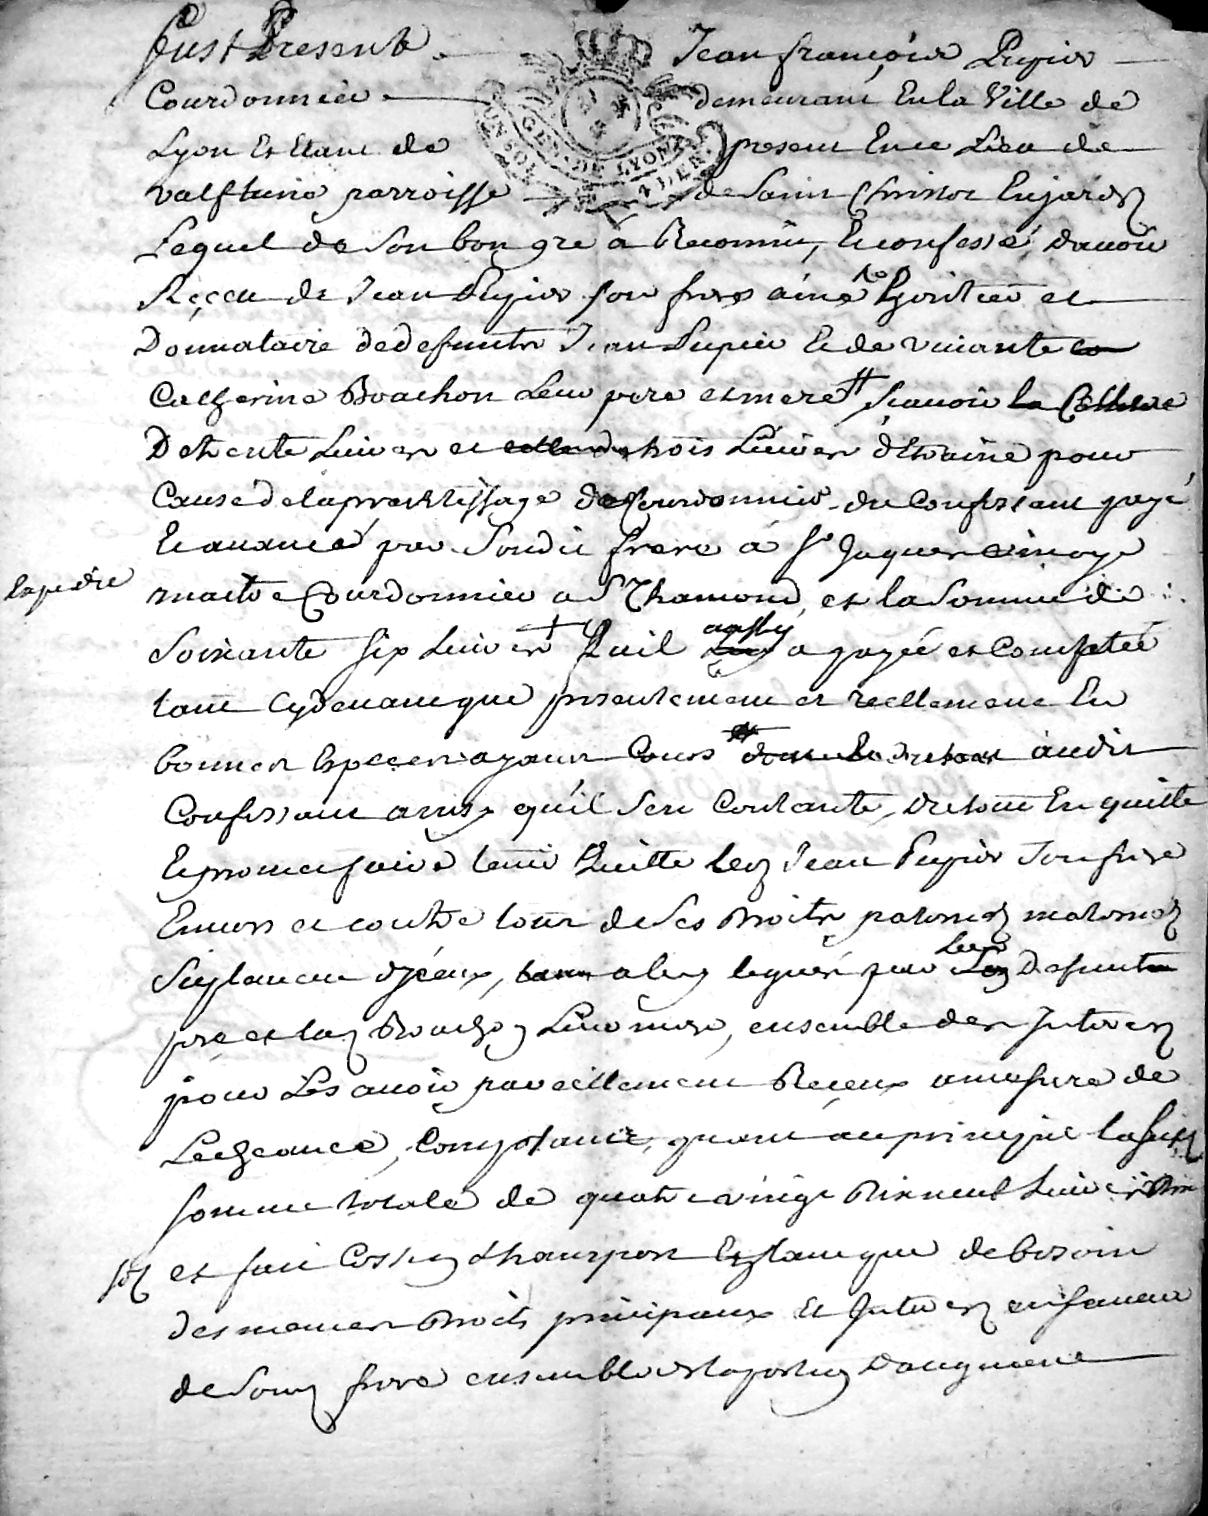 fust Present Jean françois Pupier
Courdonnier demeurant En la Ville de
Lyon Et Etant de present En ce Lieu de
valfleurie parroisse de Saint Christot En jarez
Lequel de Son bon gre a Reconnu, Et confessé, d'avoir
Reçeu de Jean Pupier son frere ainé heritier et
Donnataire de defunts Jean Pupier Et de vivante
Catherine Boachon Leur pere et mere, scavoir
De trente Livres et trois Livres d'Etraine pour
Cause de laprentissage de Courdonnier du Confessant payé
Et avancé par Sondit frere a Sr Jaques
maitre Courdonnier a St Chamond, et la Somme de
Soixante six Livres Quil a payée et Comptée
tant Cydevant que presentement et reellement En
bonnes Especes ayant Cours audit
Confessant ainsy qu'il Sen Contante, du tout En quitte
Et promet faire tenir Quitte led Jean Pupier Son frere
Envers et contre tous de Ses droits paternels maternels
Suplement d'yceux, a luy legués par Leur Defunt
pere et lad Boachon Leur mere, ensemble des Interez
pour Les avoir pareillement Reçeus amesure de
Lecheance, Comptant, quant au principal lad
somme totale de quatre vingt Dix neuf Livres
et fait Cession transport Et autant que de besoin
des memes droits principaux Et Interez en faveur
de Sond frere ensemble et la portion D'augment